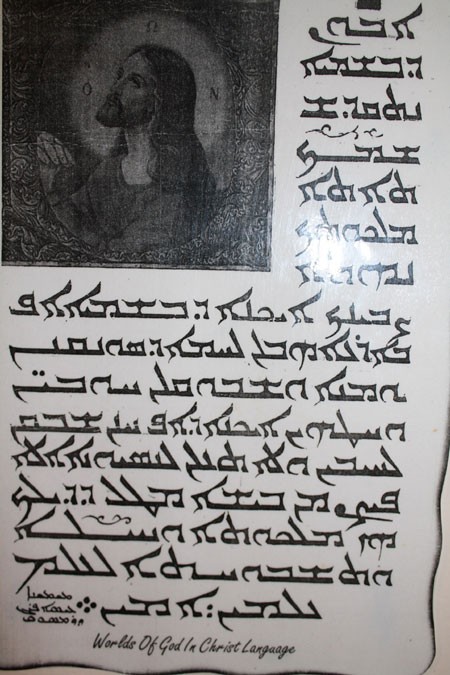 ܐܒܘܢ
ܕܒܫܡܝܐ
ܢܬܩܕܫ
ܫܡܟ
ܬܐܬܐ
ܡܠܟܘܬܟ
ܢܗܘܐ
ܨܒܝܢܟ ܐܝܟܢܐ ܕܒܫܡܝܐ ܐܦ
ܒܐܪܥܐ ܗܒ ܠܢ ܠܚܡܐ ܕܣܘܢܩܢܢ
ܝܘܡܢܐ ܘܫܒܘܩ ܠܢ ܚܘܒܝ̈ܢ
ܘܚܛܗܝܢ ܐܝܟܢܐ ܕܐܦ ܚܢܢ ܫܒܩܢ
ܠܚܝܒܝܢ ܘܠܐ ܬܥܠܢ ܠܢܣܝܘܢܐ ܐܠܐ
ܦܨܢ ܡܢ ܒܝܫܐ ܡܛܠ ܕܕܝܠܟ
ܗܝ ܡܠܟܘܬܐ ܘܚܝܠܐ
ܘܬܫܒܘܚܬܐ ܠܥܠܡ
ܥܠܡܝܢ: ܐܡܝܢ
Worlds Of God In Christ Language